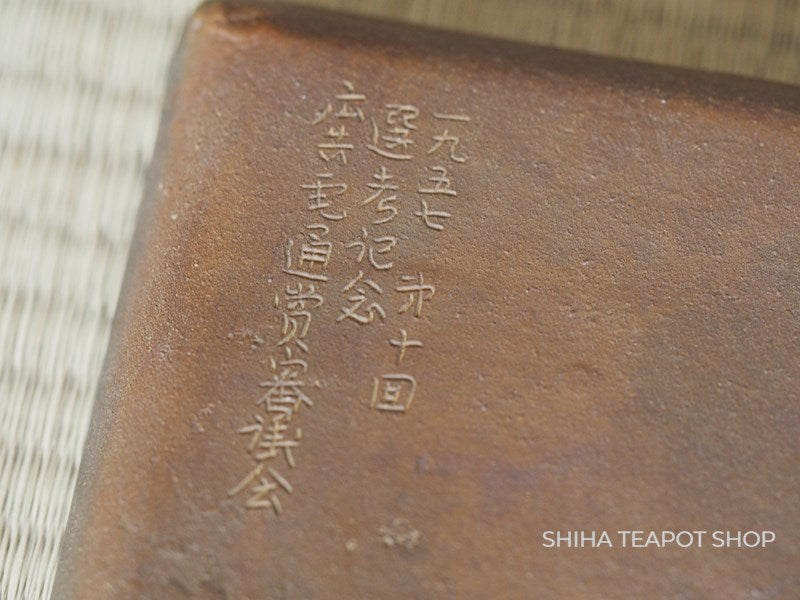 一九五七 第十回
選考記念
広告電通賞審議会
SHIHA TEAPOT SHOP